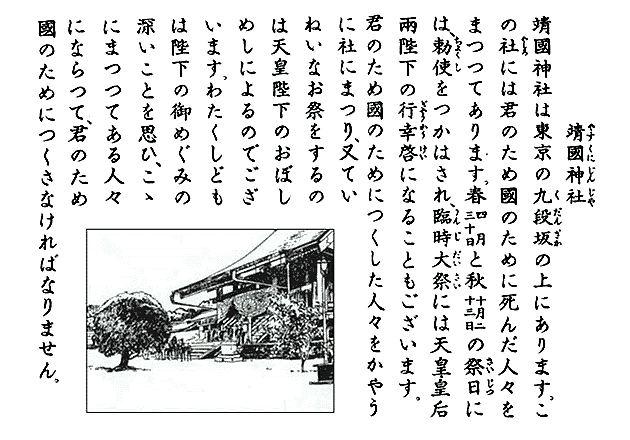 靖國神社
やすくにじんじや
靖國神社は東京の九段坂の上にあります。こ
の社には君のため國のために死んだ人々を
まつつてあります。春四月三十日と秋十月二十三日の祭日に
は、勅使をつかはされ、臨時大祭には天皇皇后
兩陛下の行幸啓になることもございます。
君のため國のためにつくした人々をかやう
に社にまつり、又てい
ねいなお祭をするの
は天皇陛下のおぼし
めしによるのでござ
います。わたくしども
は陛下の御めぐみの
深いことを思ひ、こゝ
にまつつてある人々
にならつて、君のため
國のためにつくさなければなりません。